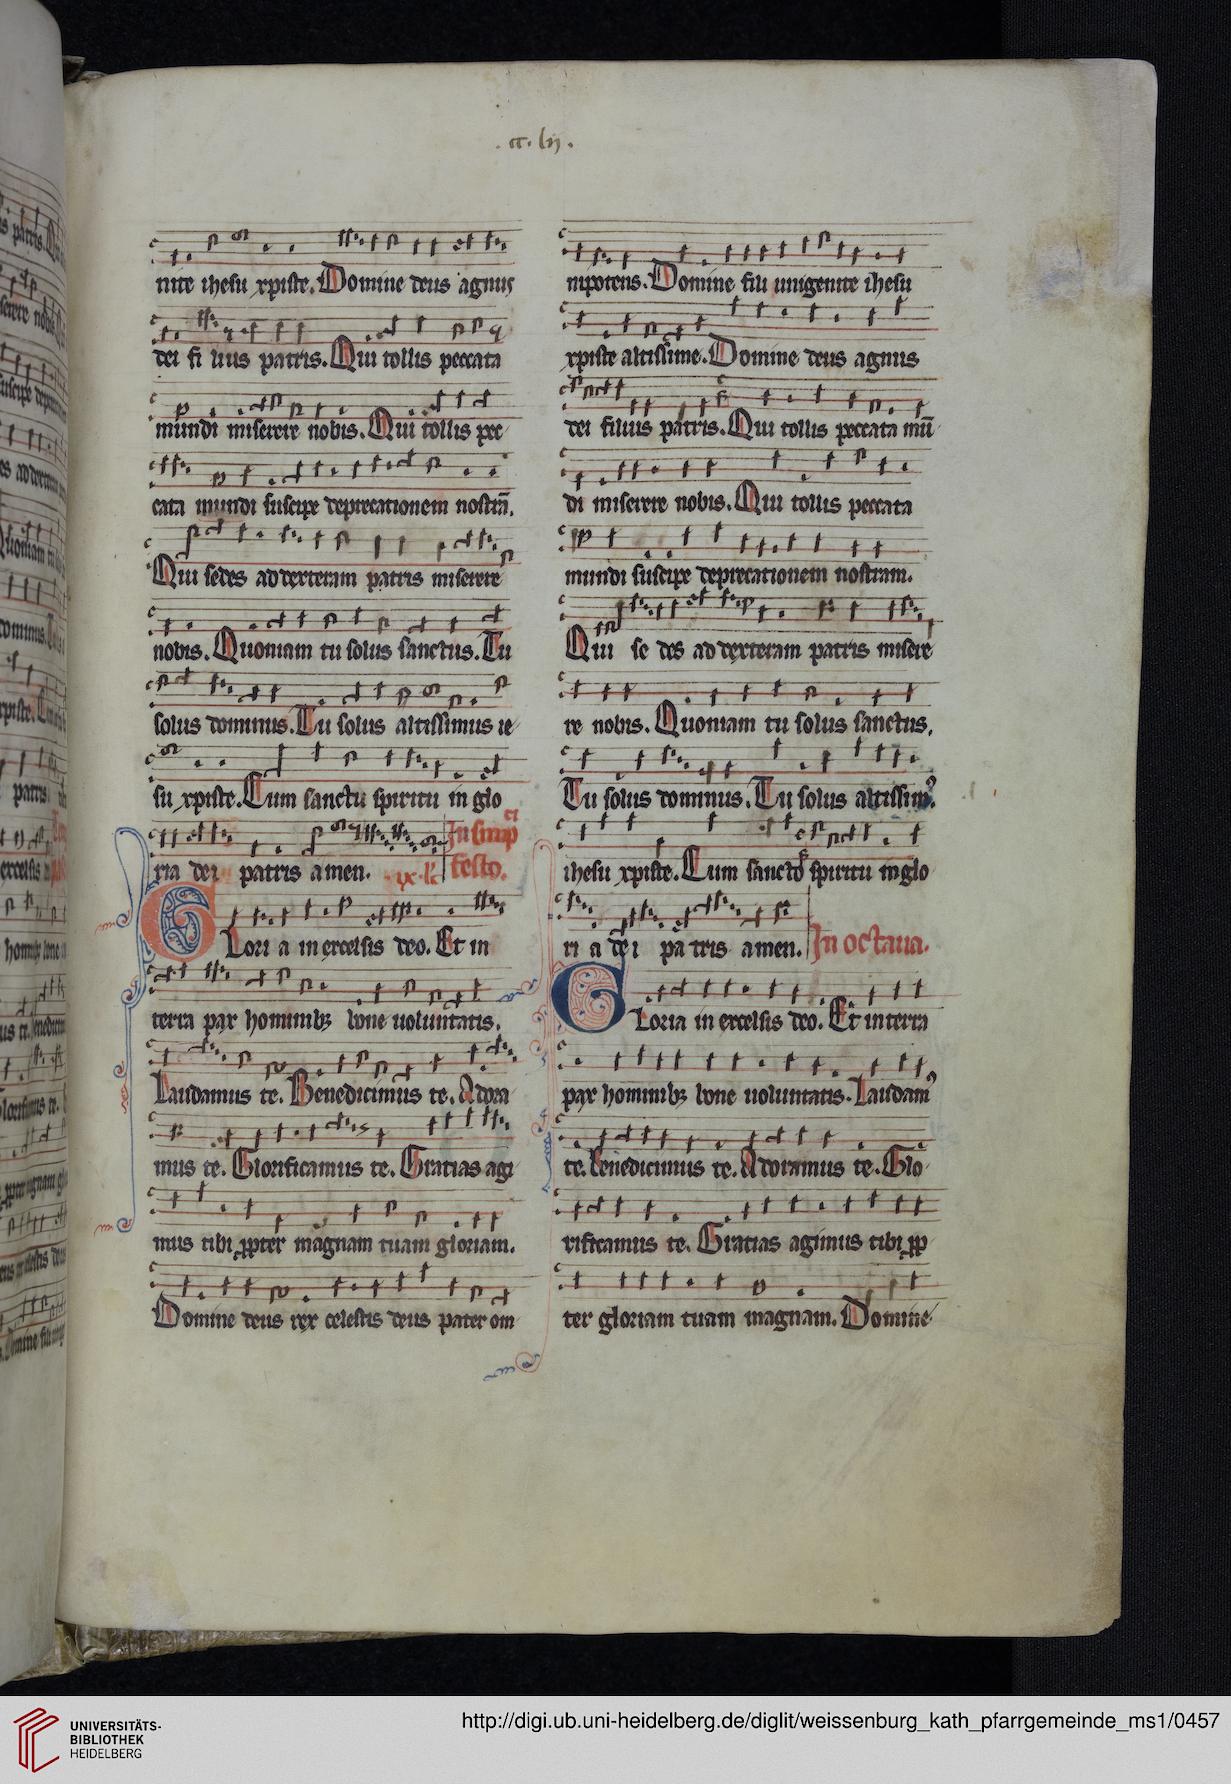 .cc.lvj.
nite ihesu xpiste. Domine deus agnus
dei fi lius patris. Qui tollis peccata
mundi miserere nobis. Qui tollis pec
cata mundi suscipe deprecationem nostrā.
Qui sedes ad dexteram patris miserere
nobis. Quoniam tu solus sanctus. Tu
solus dominus. Tu solus altissimus ie
su xpiste. Cum sanctu spiritu in glo
ria dei patris amen. ix. lc̄
In simp
festo.
Glori a in excelsis deo. Et in
terra pax hominibꝫ bone uoluntatis.
Laudamus te. Benedicimus te. Adora
mus te. Glorificamus te. Gratias agi
mus tibi ꝓpter magnam tuam gloriam.
Domine deus rex celestis deus pater om
nipotens. Domine fili unigenite ihesu
xpiste altissime. Domine deus agnus
dei filius patris. Qui tollis peccata mū
di miserere nobis. Qui tollis peccata
mundi suscipe deprecationem nostram.
Qui se des ad dexteram patris misere
re nobis. Quoniam tu solus sanctus.
Tu solus dominus. Tu solus altissimꝰ.
ihesu xpiste. Cum sancto spiritu in glo
ri a de i pa tris amen. In octaua.
Gloria in excelsis deo. Et in terra
pax hominibꝫ bone uoluntatis. Laudamꝰ
te. Benedicimus te. Adoramus te. Glo
rificamus te. Gratias agimus tibi ꝓp
ter gloriam tuam magnam. Domine
UNIVERSITÄTS-
BIBLIOTHEK
HEIDELBERG
http://digi.ub.uni-heidelberg.de/diglit/weissenburg_kath_pfarrgemeinde_ms1/0457